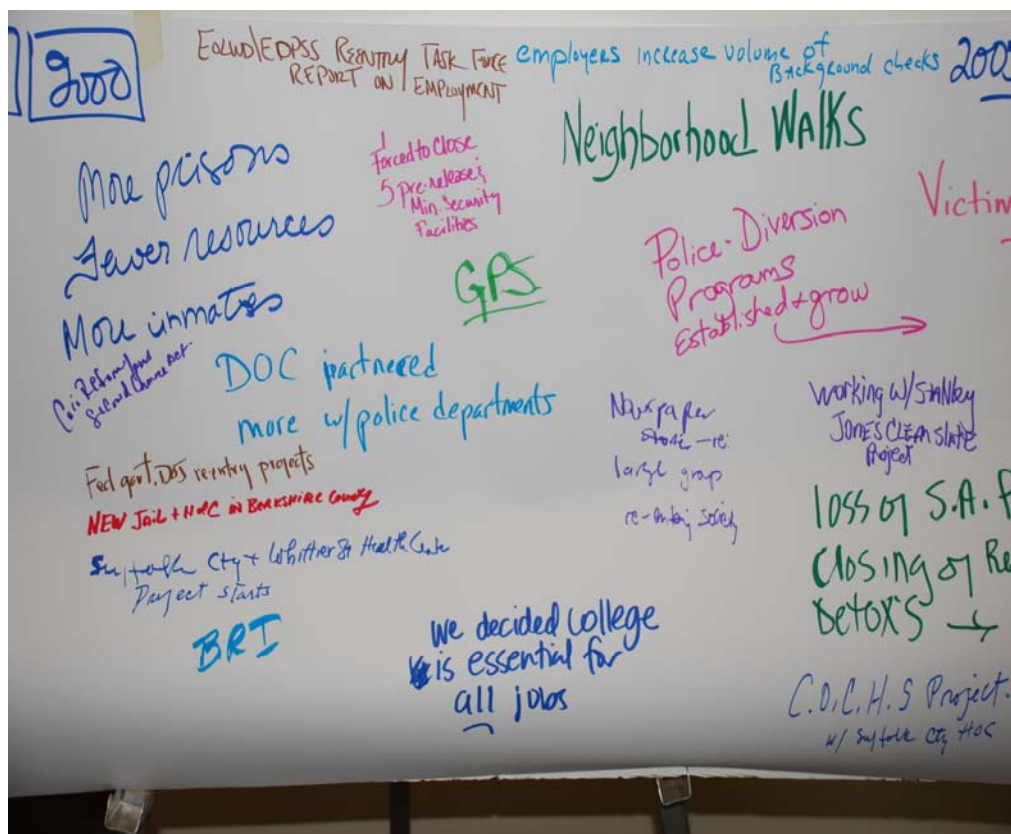 2000
EOLWD/EOPSS REENTRY TASK FORCE
REPORT ON EMPLOYMENT
employers increase volume of
Background checks
200
More prisons
Fewer resources
More inmates
Forced to Close
5 pre-release &
Min. Security
Facilities
Neighborhood WALKS
GPS
Police-Diversion
Programs
Established + grow
Victim
Cori Reform and
Second Chance Act
DOC partnered
more w/ police departments
Newspaper
re:
large group
re-entering society
Working w/ Stanley
JONES CLEAN SLATE
Project
Fed govt. DOJ re-entry projects
NEW JAIL + HOC IN BERKSHIRE County
Suffolk Cty + Whittier St Health Center
Project starts
BRI
we decided college
is essential for
all jobs
loss of S.A. P
Closing of Re
Detox's
C.O.C.H.S Project.
w/ Suffolk Cty HOC